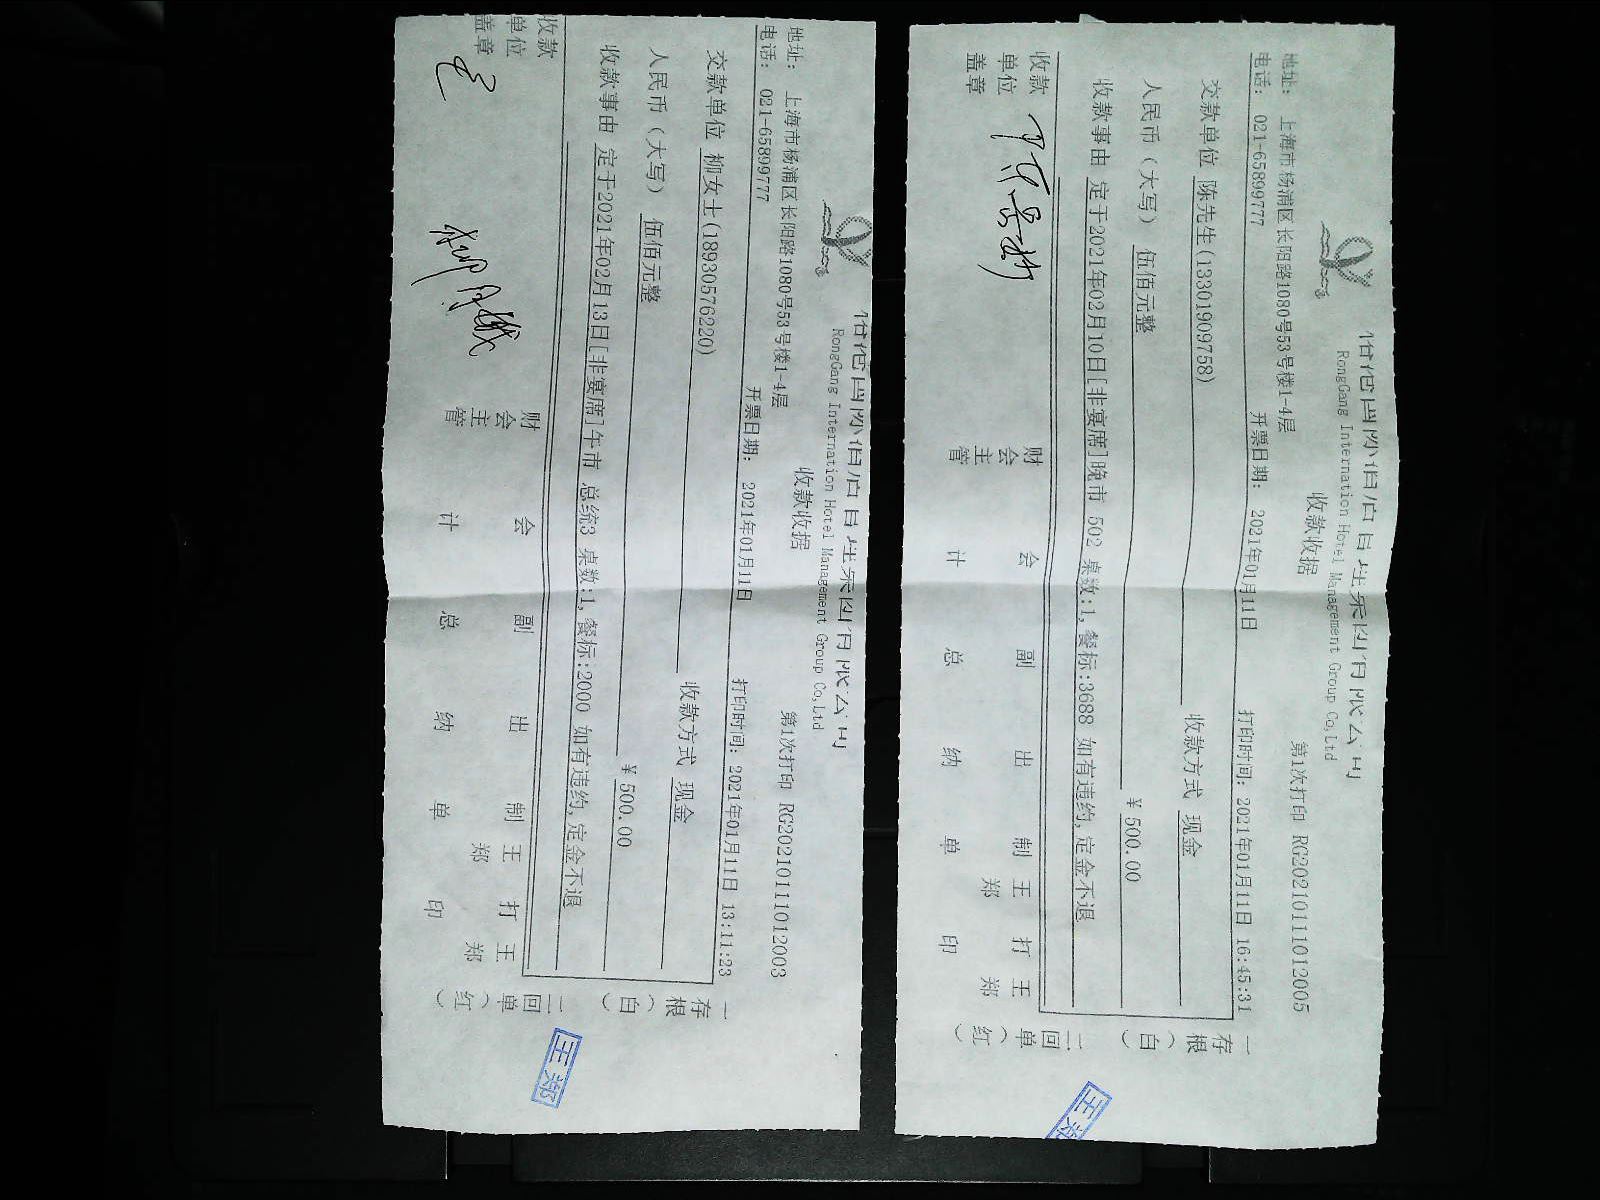 RongGang Internation Hotel Management Group Co,Ltd
收款收据
第1次打印 RG20210111012003
地址: 上海市杨浦区长阳路1080号53号楼1-4层
电话: 021-65899777
开票日期: 2021年01月11日
打印时间: 2021年01月11日 13:11:23
交款单位 柳女士(18930576220)
收款方式 现金
人民币(大写) 伍佰元整
¥500.00
收款事由 定于2021年02月13日[非宴席]午市 总统3 桌数:1,餐标:2000 如有违约,定金不退
收款单位盖章
财会主管
会计
副总
出纳
制单 王郑
打印 王郑
一存根(白)
二回单(红)
王郑
RongGang Internation Hotel Management Group Co,Ltd
收款收据
第1次打印 RG20210111012005
地址: 上海市杨浦区长阳路1080号53号楼1-4层
电话: 021-65899777
开票日期: 2021年01月11日
打印时间: 2021年01月11日 16:45:31
交款单位 陈先生(13301909758)
收款方式 现金
人民币(大写) 伍佰元整
¥500.00
收款事由 定于2021年02月10日[非宴席]晚市 502 桌数:1,餐标:3688 如有违约,定金不退
收款单位盖章
财会主管
会计
副总
出纳
制单 王郑
打印 王郑
一存根(白)
二回单(红)
王郑